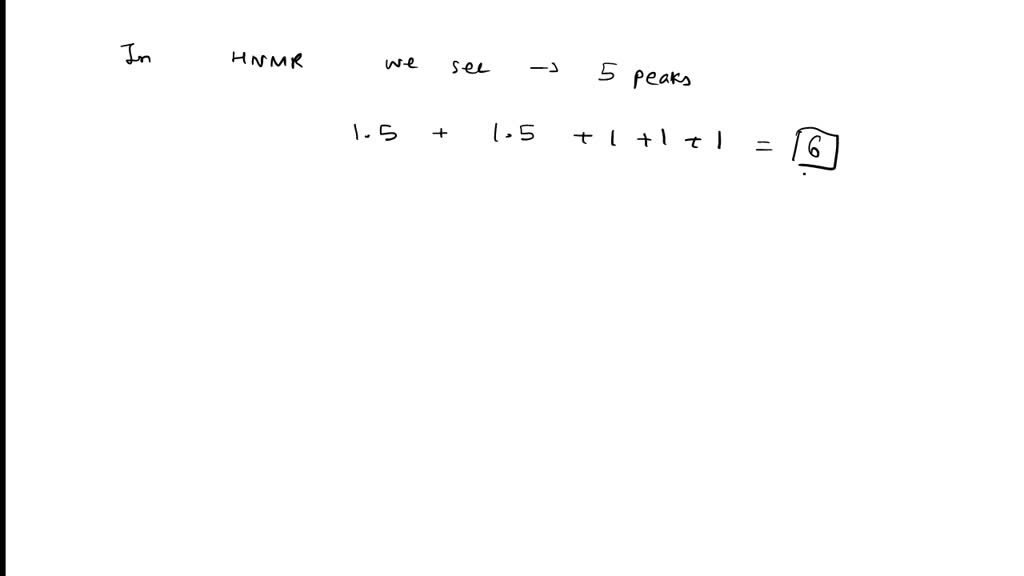 In HNMR we see → 5 peaks
1.5 + 1.5 + 1 + 1 + 1 = 6